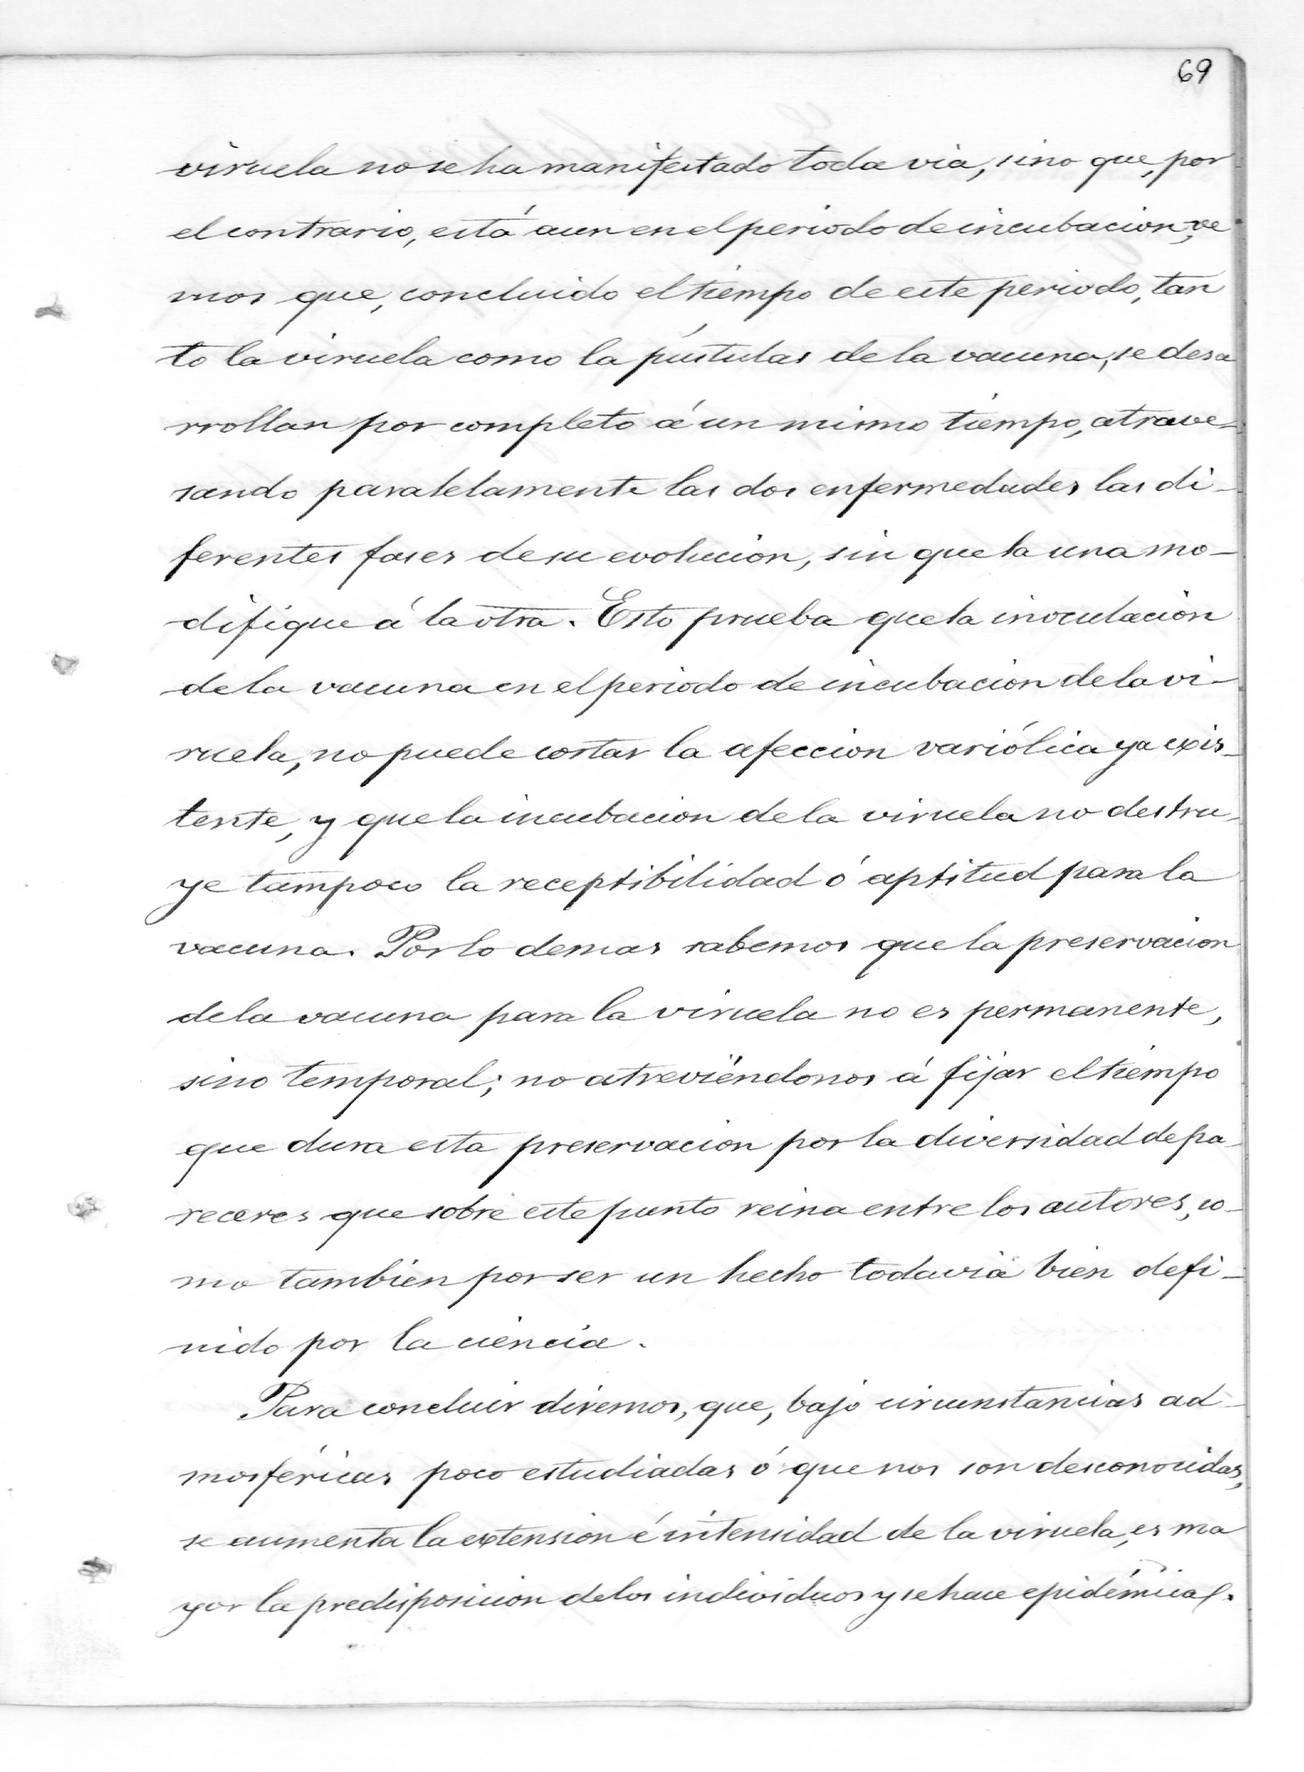 69
viruela no se ha manifestado toda via, sino que, por
el contrario, está aun en el periodo de incubacion, ve
mos que, concluido el tiempo de este periodo, tan
to la viruela como la pústulas de la vacuna, se desa
rrollan por completo á un mismo tiempo, atrave-
sando paralelamente las dos enfermedades las di-
ferentes fases de su evolucion, sin que la una mo-
difique á la otra. Esto prueba que la inoculacion
de la vacuna en el periodo de incubacion de la vi-
ruela, no puede cortar la afeccion variólica ya exis-
tente, y que la incubacion de la viruela no destru-
ye tampoco la receptibilidad ó aptitud para la
vacuna. Por lo demas sabemos que la preservacion
de la vacuna para la viruela no es permanente,
sino temporal; no atreviéndonos á fijar el tiempo
que dura esta preservacion por la diversidad de pa-
receres que sobre este punto reina entre los autores, co-
mo tambien por ser un hecho todavia bien defi-
nido por la ciencia.
Para concluir diremos, que, bajo circunstancias ad-
mosféricas poco estudiadas ó que nos son desconocidas,
se aumenta la extension é intensidad de la viruela, es ma
yor la predisposicion de los individuos y se hace epidémica.